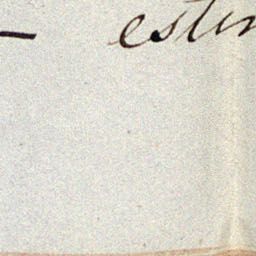 — estin